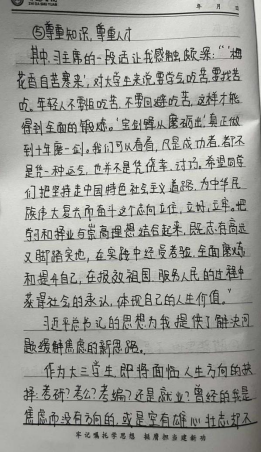 年 月 日
⑤尊重知识,尊重人才
其中,习主席的一段话让我感触颇深:“‘梅
花香自苦寒来’,对大学生来说,要学会吃苦,要找苦
吃。年轻人不要怕吃苦,不要回避吃苦,这样才能
得到全面的锻炼。‘宝剑锋从磨砺出’,真正做
到十年磨一剑。我们可以看看,凡是成功者,都不
是凭一种运气,也并不是凭侥幸、讨巧。希望同学
们把坚持走中国特色社会主义道路,为中华民
族伟大复兴而奋斗这个志向立住,立好,立牢。把
学习和择业与崇高理想结合起来,既志有高远,
又脚踏实地,在实践中经受考验,全面磨炼
和提升自己,在报效祖国、服务人民的过程中
获得社会的承认,体现自己的人生价值。”
习近平总书记的思想为我提供了解决问
题,缓解焦虑的新思路。
作为大三学生,即将面临人生方向的抉
择:考研?考公?考编?还是就业?曾经的我是
焦虑而没有方向的,或是空有雄心壮志,却不
牢记嘱托学思想 挺膺担当建新功